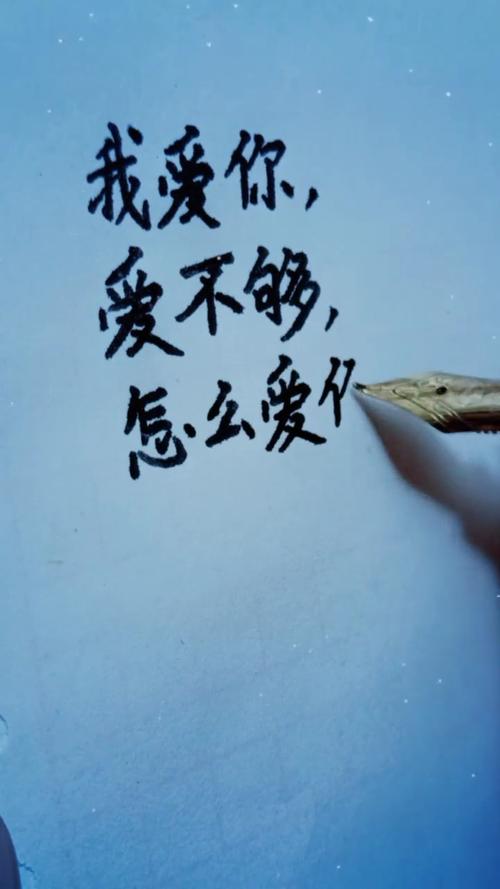 我爱你,
爱不够,
怎么爱